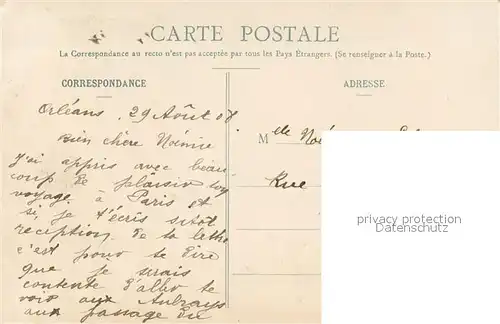 CARTE POSTALE
La Correspondance au recto n'est pas acceptée par tous les Pays Étrangers. (Se renseigner à la Poste.)
CORRESPONDANCE
ADRESSE
Orléans, 29 Août 07
Bien chère Noémie
J'ai appris avec beau
coup de plaisir ton
voyage à Paris et
si je t'écris sitôt
réception de ta lettre
c'est pour te dire
que je serais
contente d'aller te
voir aux Aubrays
au passage du
Melle Noé
Rue
privacy protection
Datenschutz